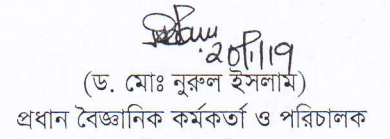 20/1/19
(ড. মোঃ নুরুল ইসলাম)
প্রধান বৈজ্ঞানিক কর্মকর্তা ও পরিচালক